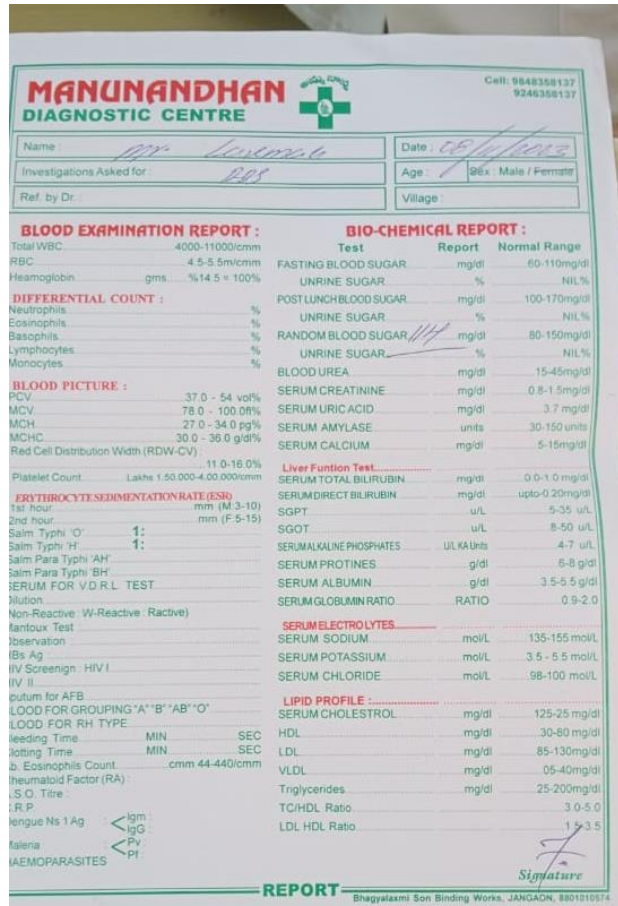 MANUNANDHAN
DIAGNOSTIC CENTRE
Cell: 9848358137
9246358137
Name : Mr.
Date : 08/11/2003
Investigations Asked for : RBS
Age : Sex : Male / Female
Ref. by Dr. :
Village :
BLOOD EXAMINATION REPORT :
Total WBC 4000-11000/cmm
RBC 4.5-5.5m/cmm
Heamoglobin gms %14.5 = 100%
DIFFERENTIAL COUNT :
Neutrophils %
Eosinophils %
Basophils %
Lymphocytes %
Monocytes %
BLOOD PICTURE :
PCV 37.0 - 54 vol%
MCV 78.0 - 100.0fl%
MCH 27.0 - 34.0 pg%
MCHC 30.0 - 36.0 g/dl%
Red Cell Distribution Width (RDW-CV) :
11.0-16.0%
Platelet Count Lakhs 1.50.000-4.00.000/cmm
ERYTHROCYTE SEDIMENTATION RATE (ESR)
1st hour mm (M:3-10)
2nd hour mm (F:5-15)
Salm Typhi 'O' 1:
Salm Typhi 'H' 1:
Salm Para Typhi 'AH'
Salm Para Typhi 'BH'
SERUM FOR V.D.R.L TEST
Dilution
Non-Reactive : W-Reactive : Ractive)
Mantoux Test :
Observation
HBs Ag :
HIV Screenign : HIV I
HIV II
Sputum for AFB
BLOOD FOR GROUPING "A" "B" "AB" "O"
BLOOD FOR RH TYPE
Bleeding Time MIN SEC
Clotting Time MIN SEC
Ab. Eosinophils Count cmm 44-440/cmm
Rheumatoid Factor (RA) :
A.S.O. Titre :
C.R.P.
Dengue Ns 1 Ag : < Igm :
IgG :
Maleria : < Pv :
Pf :
HAEMOPARASITES
BIO-CHEMICAL REPORT :
Test Report Normal Range
FASTING BLOOD SUGAR mg/dl 60-110mg/dl
UNRINE SUGAR % NIL%
POST LUNCH BLOOD SUGAR mg/dl 100-170mg/dl
UNRINE SUGAR % NIL%
RANDOM BLOOD SUGAR 114 mg/dl 80-150mg/dl
UNRINE SUGAR % NIL%
BLOOD UREA mg/dl 15-45mg/dl
SERUM CREATININE mg/dl 0.8-1.5mg/dl
SERUM URIC ACID mg/dl 3.7 mg/dl
SERUM AMYLASE units 30-150 units
SERUM CALCIUM mg/dl 5-15mg/dl
Liver Funtion Test
SERUM TOTAL BILIRUBIN mg/dl 0.0-1.0 mg/dl
SERUM DIRECT BILIRUBIN mg/dl upto-0.20mg/dl
SGPT u/L 5-35 u/L
SGOT u/L 8-50 u/L
SERUM ALKALINE PHOSPHATES U/L KA Units 4-7 u/L
SERUM PROTINES g/dl 6-8 g/dl
SERUM ALBUMIN g/dl 3.5-5.5 g/dl
SERUM GLOBUMIN RATIO RATIO 0.9-2.0
SERUM ELECTROLYTES
SERUM SODIUM mol/L 135-155 mol/L
SERUM POTASSIUM mol/L 3.5 - 5.5 mol/L
SERUM CHLORIDE mol/L 98-100 mol/L
LIPID PROFILE :
SERUM CHOLESTROL mg/dl 125-25 mg/dl
HDL mg/dl 30-80 mg/dl
LDL mg/dl 85-130mg/dl
VLDL mg/dl 05-40mg/dl
Triglycerides mg/dl 25-200mg/dl
TC/HDL Ratio 3.0-5.0
LDL HDL Ratio 1.5-3.5
Signature
REPORT
Bhagyalaxmi Son Binding Works, JANGAON, 8801010574